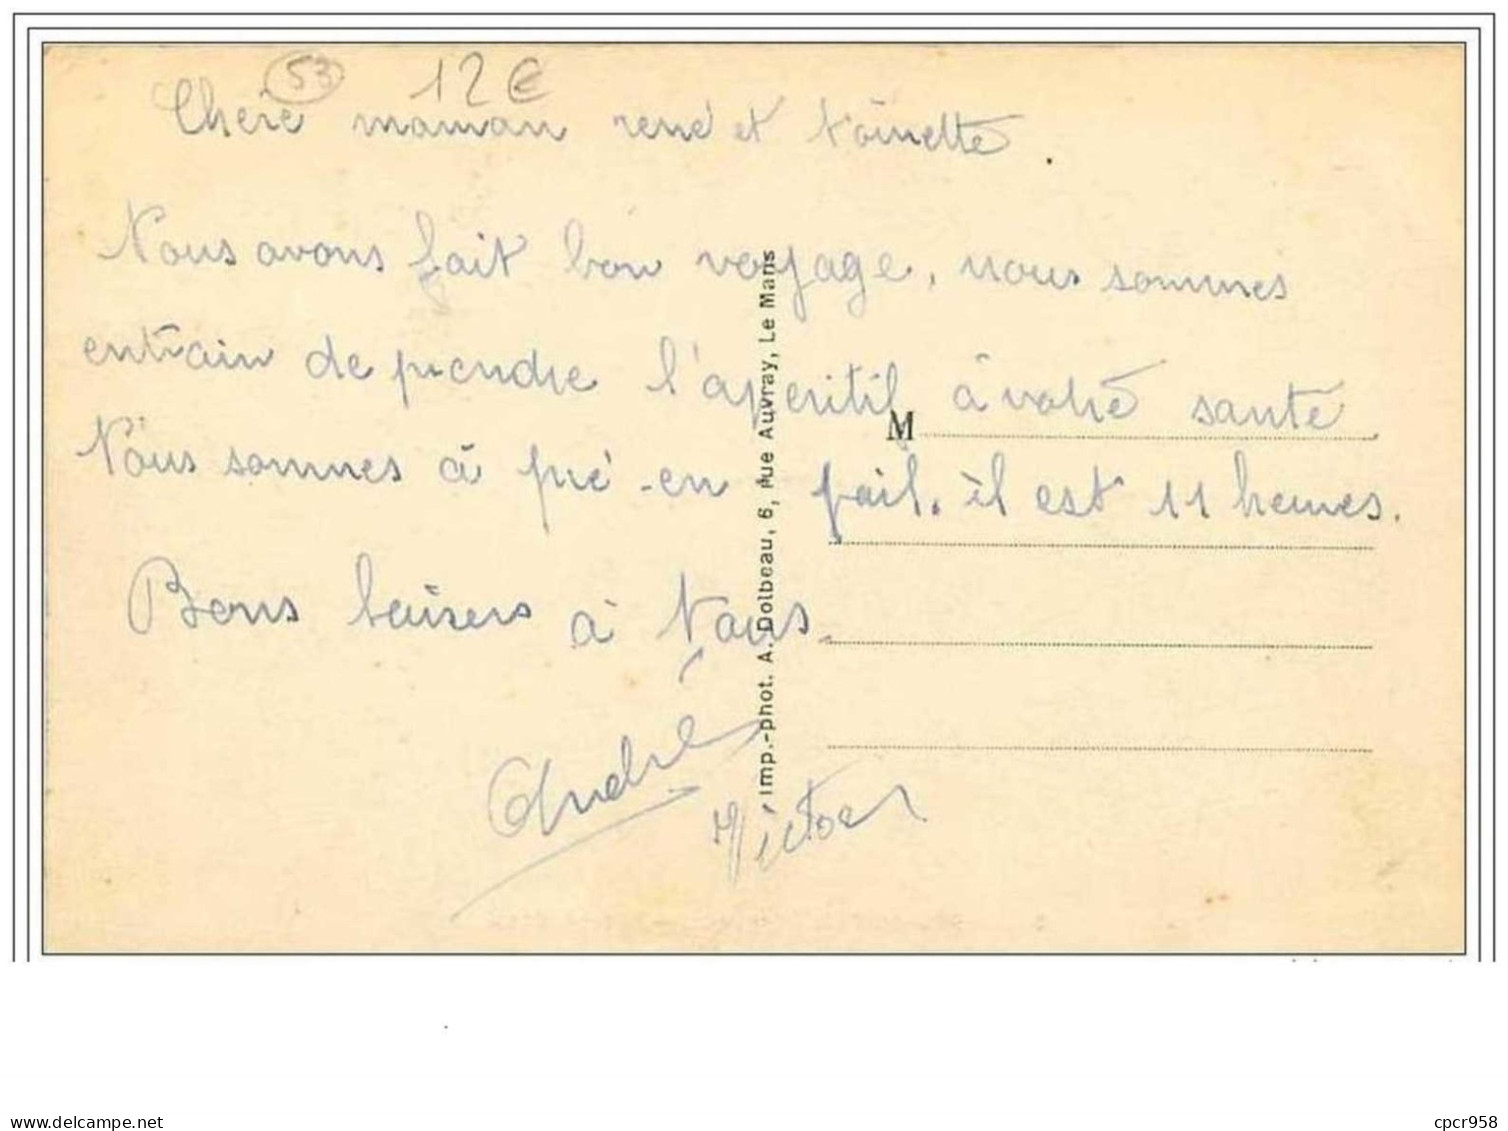 53 12€
Chère maman rené et toinette.
Nous avons fait bon voyage, nous sommes
entrain de prendre l'aperitif à votre santé
M
Nous sommes à pré-en pail. il est 11 heures.
Bons baisers à tous.
André
Victor
Imp.-phot. A. Dolbeau, 6, Rue Auvray, Le Mans
www.delcampe.net
cpcr958